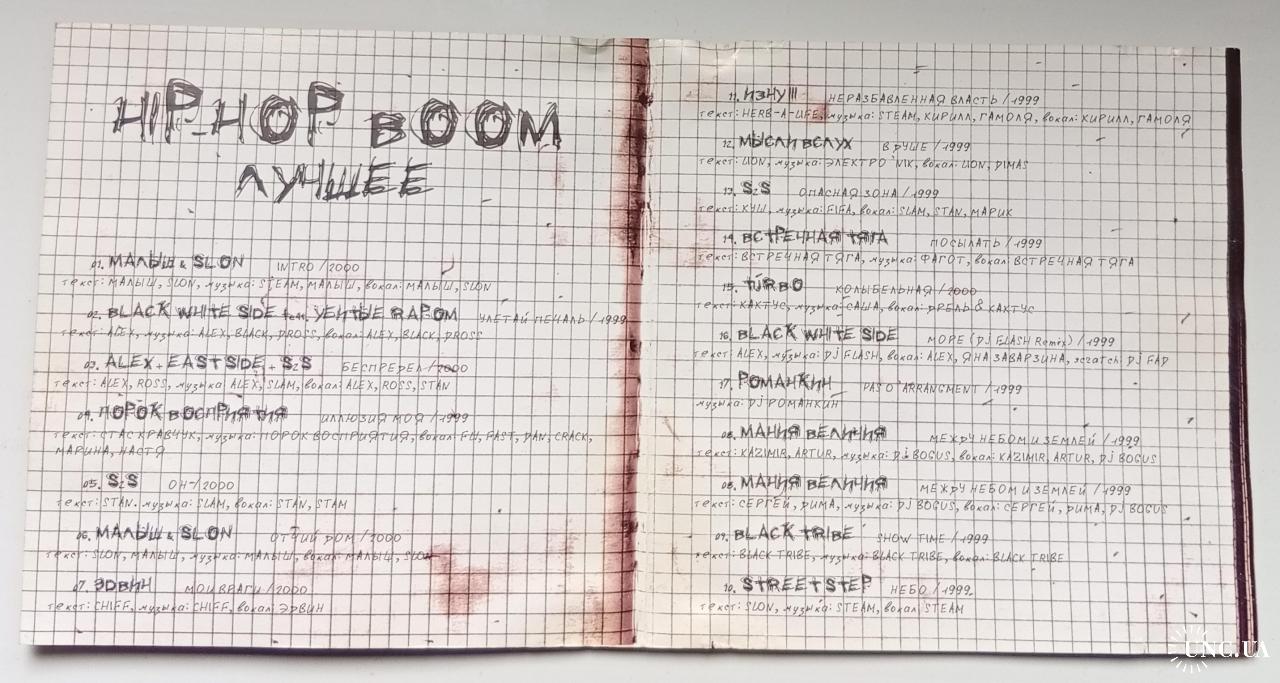 HIP-HOP BOOM
ЛУЧШЕЕ
01. МАЛЫШ & SLON INTRO / 2000
текст: МАЛЫШ, SLON, музыка: STEAM, МАЛЫШ, вокал: МАЛЫШ, SLON
02. BLACK WHITE SIDE feat. УБИТЫЕ РАРОМ УЛЕТАЙ ПЕЧАЛЬ / 1999
текст: ALEX, музыка: ALEX, BLACK, DROSS, вокал: ALEX, BLACK, DROSS
03. ALEX + EAST SIDE + S2S БЕСПРЕДЕЛ / 2000
текст: ALEX, ROSS, музыка ALEX, SLAM, вокал: ALEX, ROSS, STAN
04. ПОРОК ВОСПРИЯТИЯ ИЛЛЮЗИЯ МОЯ / 1999
текст: СТАС КРАВЧУК, музыка: ПОРОК ВОСПРИЯТИЯ, вокал: FLY, FAST, DAN, CRACK,
МАРИНА, НАСТЯ
05. S2S ОН / 2000
текст: STAN. музыка: SLAM, вокал: STAN, STAM
06. МАЛЫШ & SLON ОТЧИЙ ДОМ / 2000
текст: SLON, МАЛЫШ, музыка: МАЛЫШ, вокал: МАЛЫШ, SLON
07. ЭДВИН МОИ ВРАГИ / 2000
текст: CHIFF, музыка: CHIFF, вокал: ЭДВИН
11. ИЗНУ III НЕРАЗБАВЛЕННАЯ ВЛАСТЬ / 1999
текст: HERB-A-LIFE, музыка: STEAM, КИРИЛЛ, ГАМОЛЯ, вокал: КИРИЛЛ, ГАМОЛЯ
12. МЫСЛИ ВСЛУХ В ДУШЕ / 1999
текст: LION, музыка: ЭЛЕКТРО'NIK, вокал: LION, DIMAS
13. S2S ОПАСНАЯ ЗОНА / 1999
текст: КУШ, музыка: FIFA, вокал: SLAM, STAN, МАРИК
14. ВСТРЕЧНАЯ ТЯГА ПОСЫЛАТЬ / 1999
текст: ВСТРЕЧНАЯ ТЯГА, музыка: ФАГОТ, вокал: ВСТРЕЧНАЯ ТЯГА
15. TURBO КОЛЫБЕЛЬНАЯ / 2000
текст: КАКТУС, музыка: САША, вокал: ДРЕЛЬ & КАКТУС
16. BLACK WHITE SIDE МОРЕ (DJ FLASH Remix) / 1999
текст: ALEX, музыка: DJ FLASH, вокал: ALEX, ЯНА ЗАВАРЗИНА, scratch: DJ FAD
17. РОМАНКИН PAS O'ARRANGMENT / 1999
музыка: DJ РОМАНКИН
08. МАНИЯ ВЕЛИЧИЯ МЕЖДУ НЕБОМ И ЗЕМЛЕЙ / 1999
текст: KAZIMIR, ARTUR, музыка: DJ BOGUS, вокал: KAZIMIR, ARTUR, DJ BOGUS
08. МАНИЯ ВЕЛИЧИЯ МЕЖДУ НЕБОМ И ЗЕМЛЕЙ / 1999
текст: СЕРГЕЙ, ДИМА, музыка: DJ BOGUS, вокал: СЕРГЕЙ, ДИМА, DJ BOGUS
09. BLACK TRIBE SHOW TIME / 1999
текст: BLACK TRIBE, музыка: BLACK TRIBE, вокал: BLACK TRIBE
10. STREET STEP НЕБО / 1999
текст: SLON, музыка: STEAM, вокал STEAM
UNC.UA